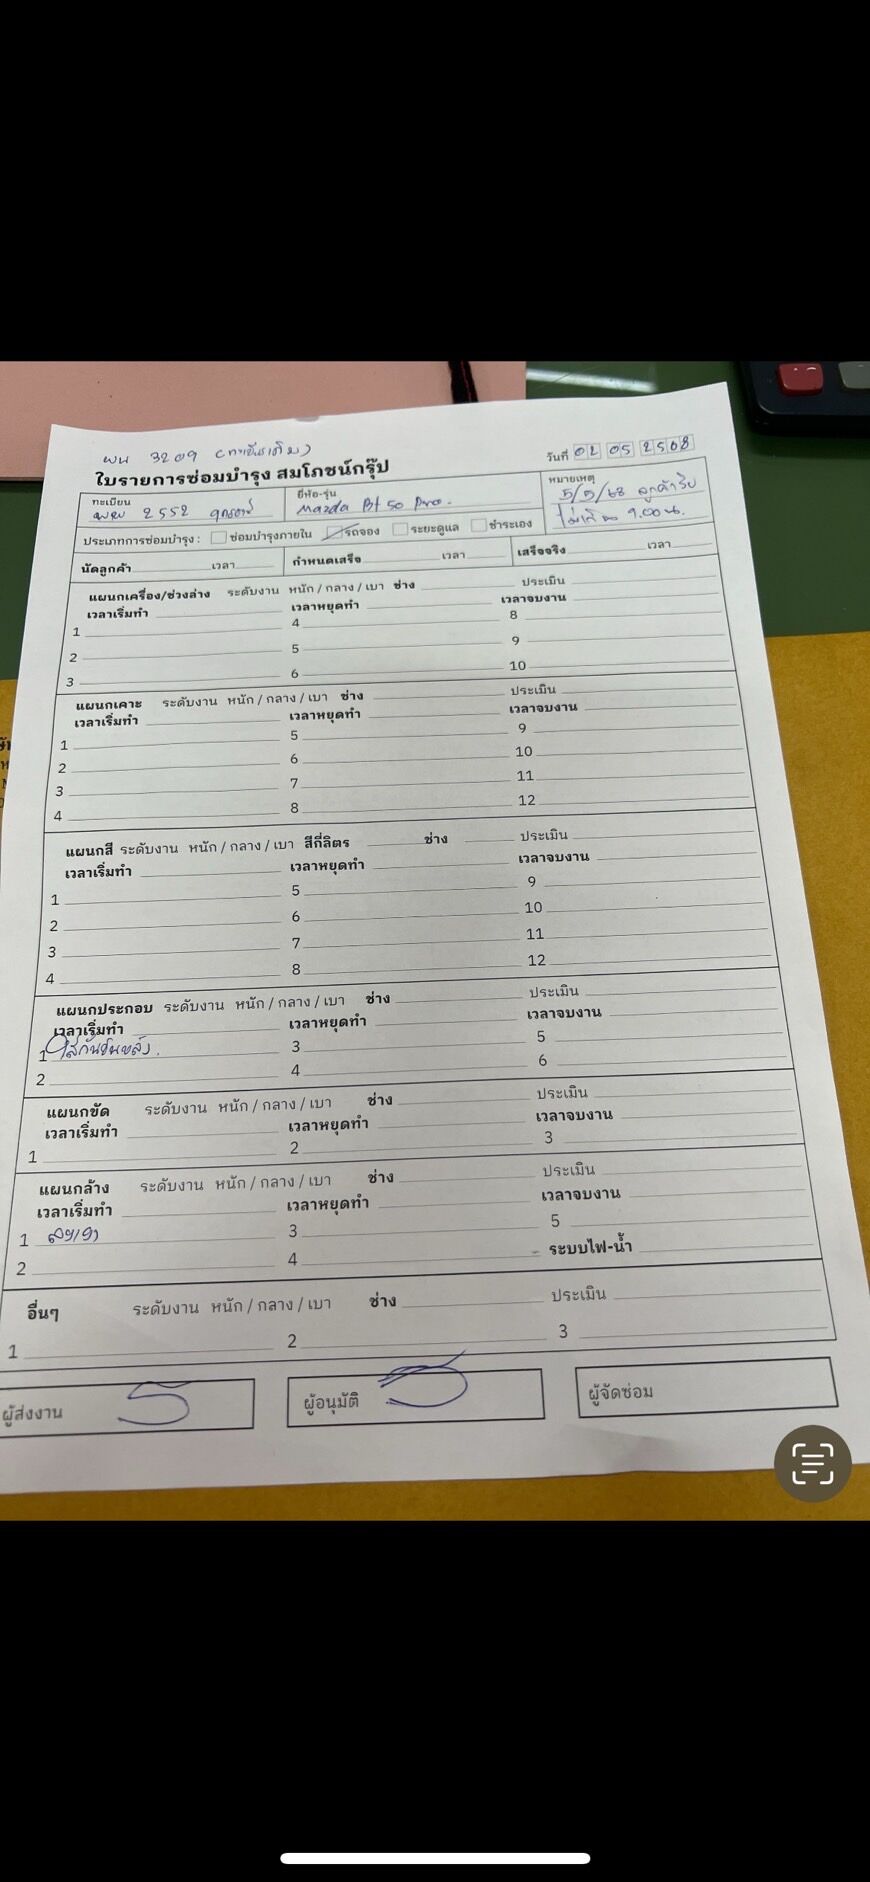 ผน 3209 (ทะเบียนเดิม)
วันที่ 02 05 2568
ใบรายการซ่อมบำรุง สมโภชน์กรุ๊ป
ทะเบียน 2552 ยี่ห้อ-รุ่น Mazda Bt 50 Pro. หมายเหตุ 5/5/68 ลูกค้ารับ
ไม่เกิน 9.00 น.
ประเภทการซ่อมบำรุง : ซ่อมบำรุงภายใน รถจอง ระยะดูแล ชำระเอง
นัดลูกค้า เวลา กำหนดเสร็จ เวลา เสร็จจริง เวลา
แผนกเครื่อง/ช่วงล่าง ระดับงาน หนัก / กลาง / เบา ช่าง ประเมิน
เวลาเริ่มทำ เวลาหยุดทำ เวลาจบงาน
1 4 8
2 5 9
3 6 10
แผนกเคาะ ระดับงาน หนัก / กลาง / เบา ช่าง ประเมิน
เวลาเริ่มทำ เวลาหยุดทำ เวลาจบงาน
1 5 9
2 6 10
3 7 11
4 8 12
แผนกสี ระดับงาน หนัก / กลาง / เบา สีกี่ลิตร ช่าง ประเมิน
เวลาเริ่มทำ เวลาหยุดทำ เวลาจบงาน
1 5 9
2 6 10
3 7 11
4 8 12
แผนกประกอบ ระดับงาน หนัก / กลาง / เบา ช่าง ประเมิน
เวลาเริ่มทำ เวลาหยุดทำ เวลาจบงาน
1 ใส่กันชนหลัง. 3 5
2 4 6
แผนกขัด ระดับงาน หนัก / กลาง / เบา ช่าง ประเมิน
เวลาเริ่มทำ เวลาหยุดทำ เวลาจบงาน
1 2 3
แผนกล้าง ระดับงาน หนัก / กลาง / เบา ช่าง ประเมิน
เวลาเริ่มทำ เวลาหยุดทำ เวลาจบงาน
1 3 5
2 4 ระบบไฟ-น้ำ
อื่นๆ ระดับงาน หนัก / กลาง / เบา ช่าง ประเมิน
1 2 3
ผู้ส่งงาน ผู้อนุมัติ ผู้จัดซ่อม